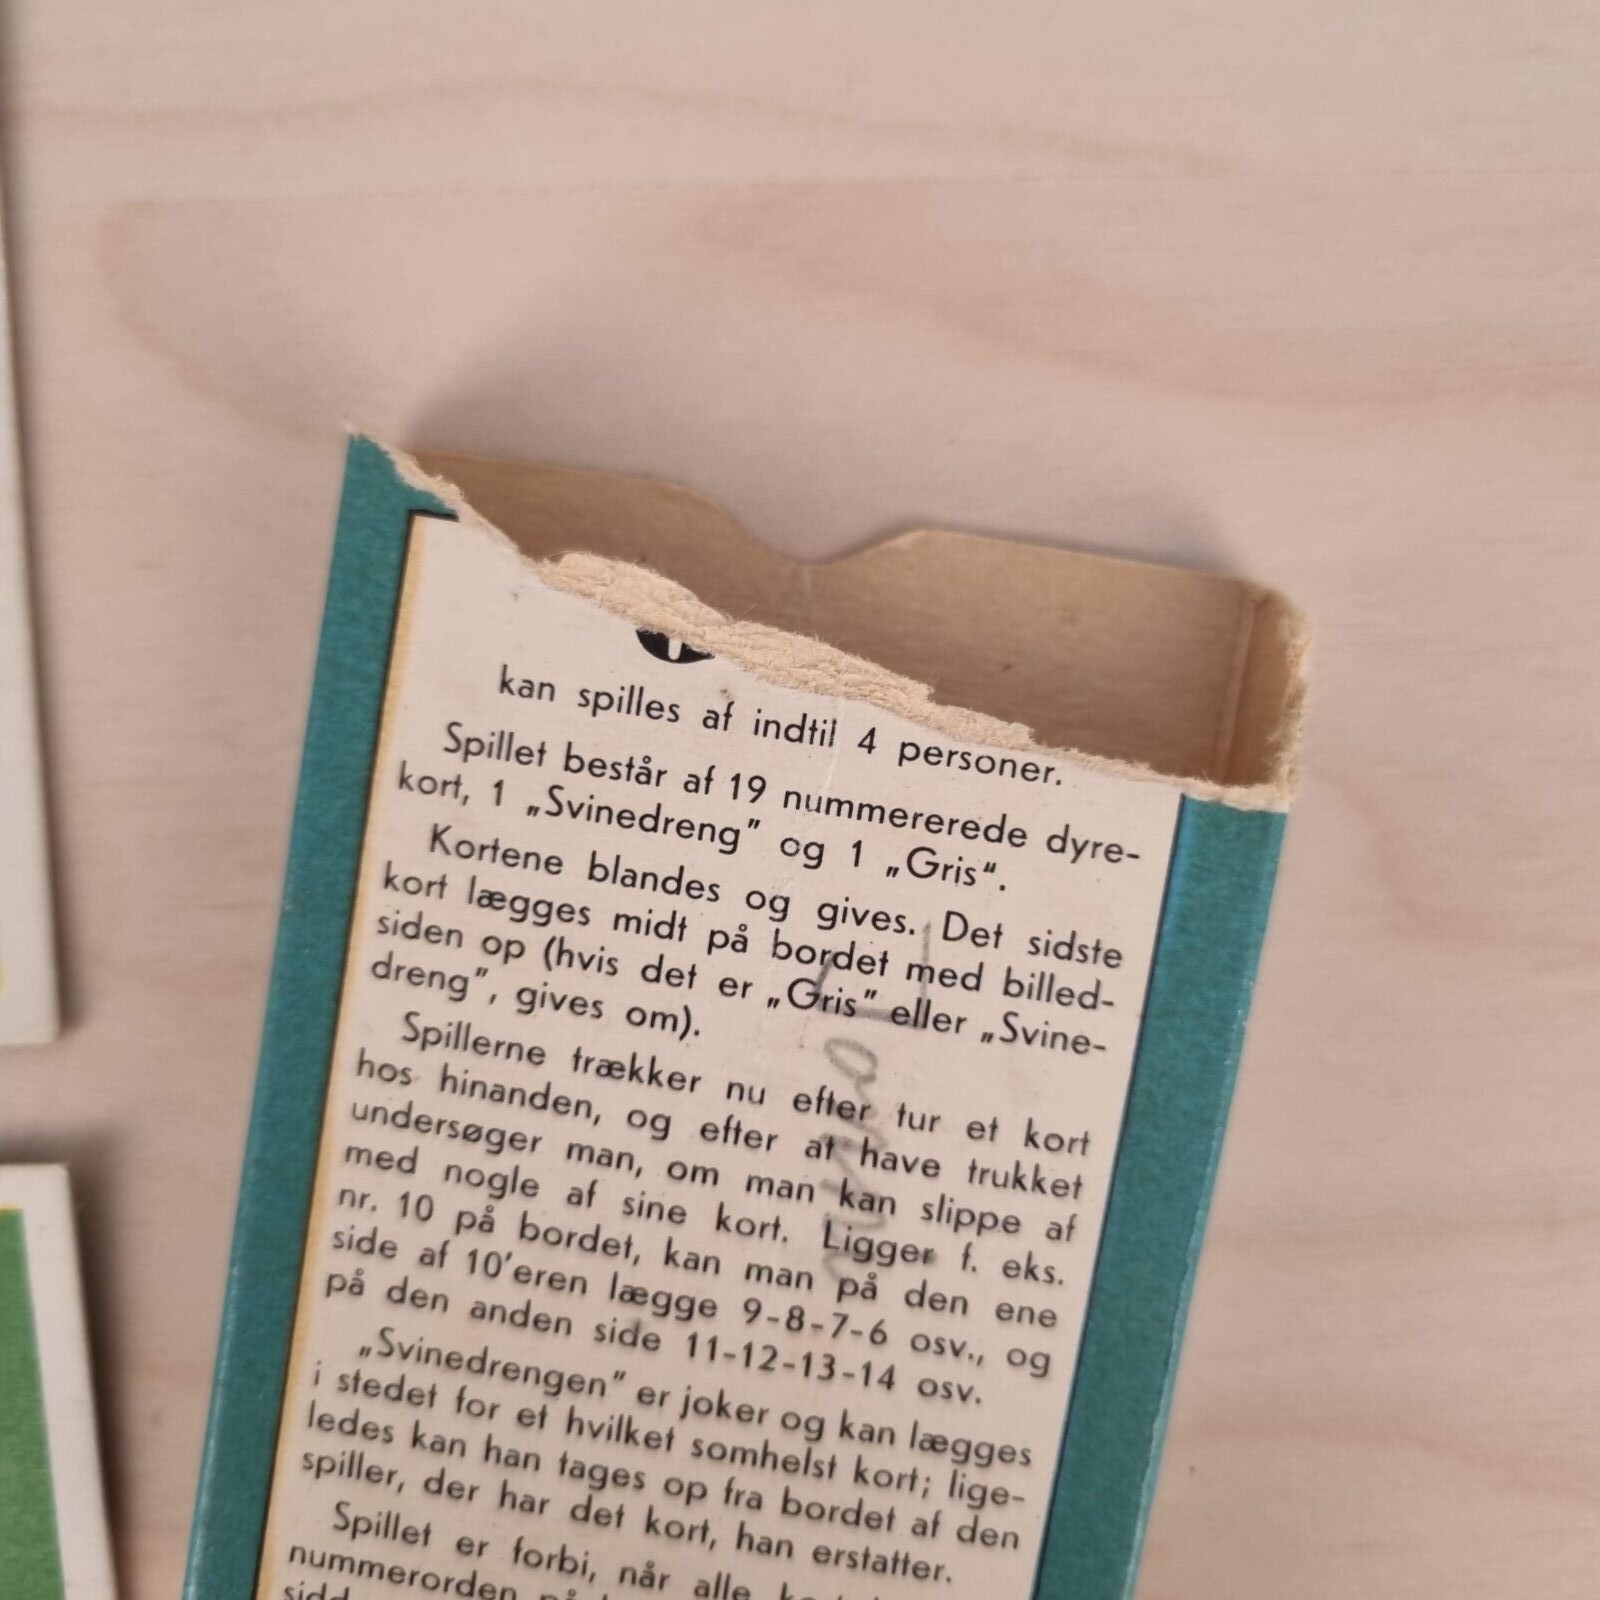 kan spilles af indtil 4 personer.
Spillet består af 19 nummererede dyre-
kort, 1 „Svinedreng” og 1 „Gris“.
Kortene blandes og gives. Det sidste
kort lægges midt på bordet med billed-
siden op (hvis det er „Gris” eller „Svine-
dreng”, gives om).
Spillerne trækker nu efter tur et kort
hos hinanden, og efter at have trukket
undersøger man, om man kan slippe af
med nogle af sine kort. Ligger f. eks.
nr. 10 på bordet, kan man på den ene
side af 10’eren lægge 9-8-7-6 osv., og
på den anden side 11-12-13-14 osv.
„Svinedrengen” er joker og kan lægges
i stedet for et hvilket somhelst kort; lige-
ledes kan han tages op fra bordet af den
spiller, der har det kort, han erstatter.
Spillet er forbi, når alle
nummerorden